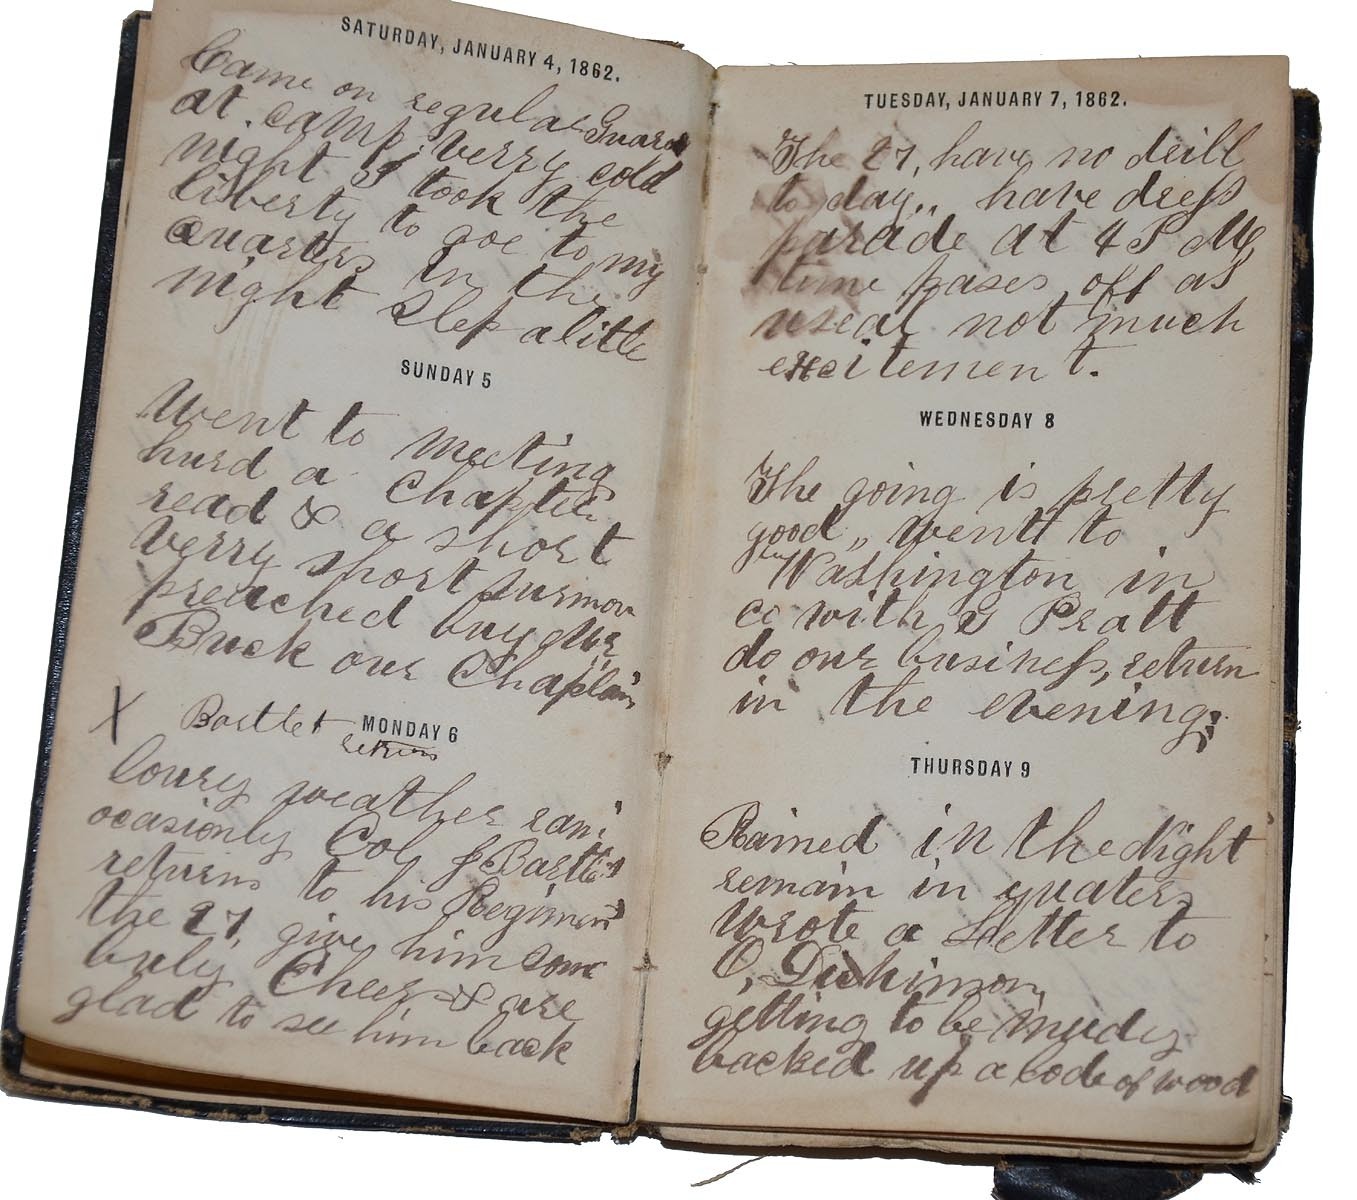 SATURDAY, JANUARY 4, 1862.
Came on regular Guard
at camp, verry cold
night I took the
liberty to goe to my
quarters in the
night slep a little
SUNDAY 5
Went to meeting
hurd a Chapter
read & a short
verry short surmon
preached buy Mr
Buck our Chaplain
X Bartlet returns
MONDAY 6
lowry weather rain
ocasionly Col Bartlet
returns to his Regiment
the 27, give him some
buly Cheers & are
glad to see him back
TUESDAY, JANUARY 7, 1862.
The 27, have no drill
to day,, have dress
parade at 4 P M,
time pases off as
useal not much
excitement.
WEDNESDAY 8
The going is pretty
good,, went to
Washington in
co with G Pratt
do our business, return
in the evening;
THURSDAY 9
Rained in the Night
remain in quaters
Wrote a Letter to
O, Dickinson,
getting to be mudy
backed up a lode of wood